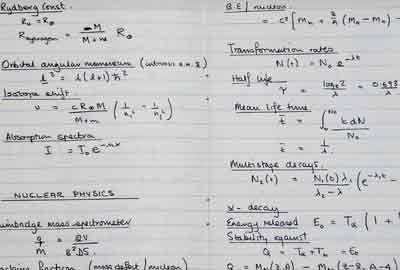 Rydberg Const.
R₀ = R∞
R hydrogen = M / M + m R∞
Orbital angular momentum
l² = l(l+1)ħ²
Isotope shift.
υ = c R∞ M / M + m (1/n₁² - 1/n₂²)
Absorption spectra
I = I₀ e
NUCLEAR PHYSICS
mass spectrometer
q/M = 2V / B²DS
fraction (mass defect / nucleon)
B.E / nucleon
= c² [Mn + Z/A (MH - Mn) -
Transformation rates
N(t) = N₀ e^-λt
Half life
τ = loge2 / λ = 0.693 / λ
Mean life time
t̄ = ∫ t dN / N₀
t̄ = 1/λ
Multistage decays.
N₂(t) = N₁(0) λ₁ / λ₂ - λ (e^-λ₁t -
α - decay
Energy released E₀ = Tα (1 +
Stability against
Q = Tα + Tb = E₀
Q = M (Z,A) - M (Z-2, A-4)